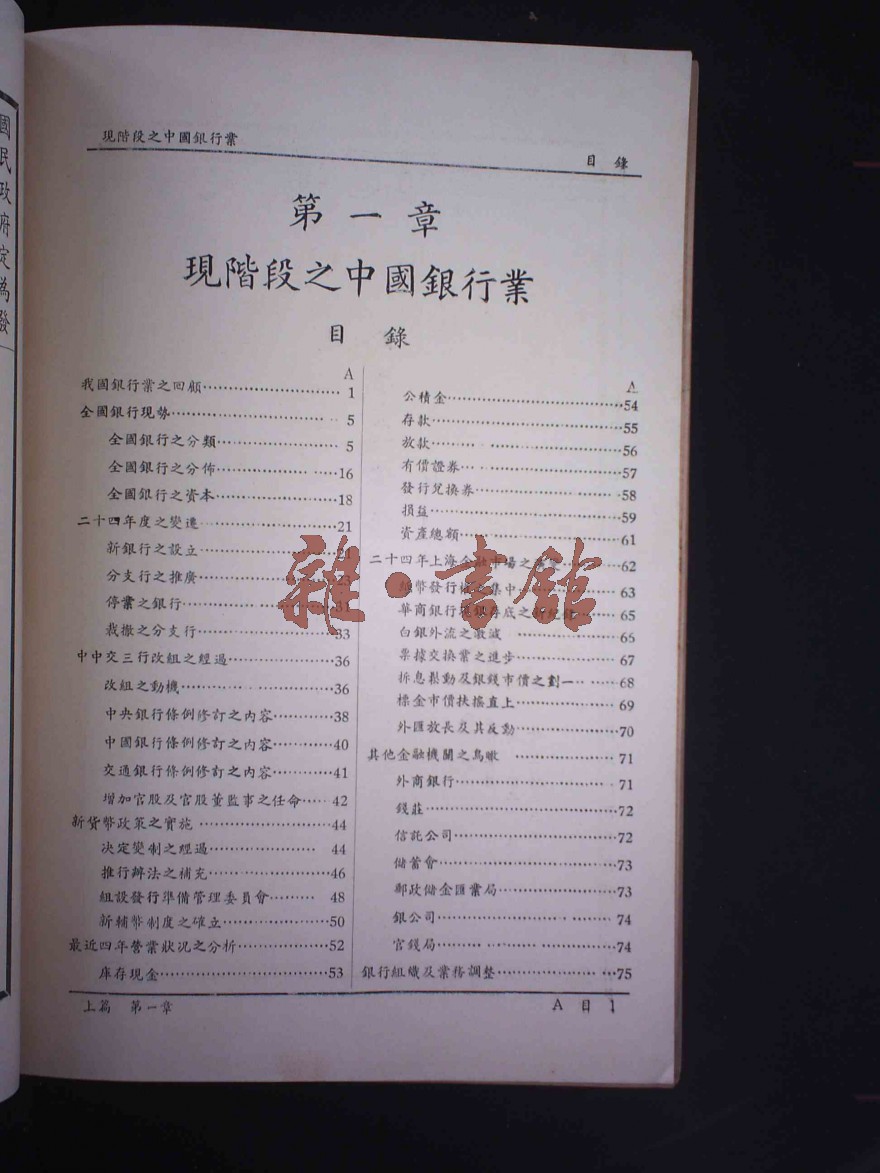 國民政府定為發
現階段之中國銀行業
目 錄
第一章
現階段之中國銀行業
目 錄
A
我國銀行業之回顧……………………… 1
全國銀行現勢……………………… 5
全國銀行之分類………………… 5
全國銀行之分佈………………16
全國銀行之資本…………………18
二十四年度之變遷………………21
新銀行之設立………………21
分支行之推廣………………23
停業之銀行………………31
裁撤之分支行………………33
中中交三行改組之經過………………36
改組之動機………………………36
中央銀行條例修訂之內容…………38
中國銀行條例修訂之內容…………40
交通銀行條例修訂之內容…………41
增加官股及官股董監事之任命…… 42
新貨幣政策之實施……………………44
決定變制之經過………………… 44
推行辦法之補充…………………46
組設發行準備管理委員會……… 48
新輔幣制度之確立…………………50
最近四年營業狀况之分析………………52
庫存現金……………………………53
A
公積金……………………………54
存款………………………………55
放款………………………………56
有價證券…………………………57
發行兌換券………………………58
損益………………………………59
資產總額…………………………61
二十四年上海金融市場之 62
幣發行權之集中………… 63
華商銀行 銀存底之新紀錄 65
白銀外流之激減 ………… 66
票據交換業之進步……………… 67
拆息鬆動及銀錢市價之劃一…… 68
標金市價扶搖直上……………… 69
外匯放長及其反動………………70
其他金融機關之鳥瞰 ……………… 71
外商銀行………………………… 71
錢莊………………………………72
信託公司…………………………72
儲蓄會……………………………73
郵政儲金匯業局…………………73
銀公司…………………………… 74
官錢局……………………………74
銀行組織及業務調整…………………75
上篇 第一章
A 目 1
雜·書館